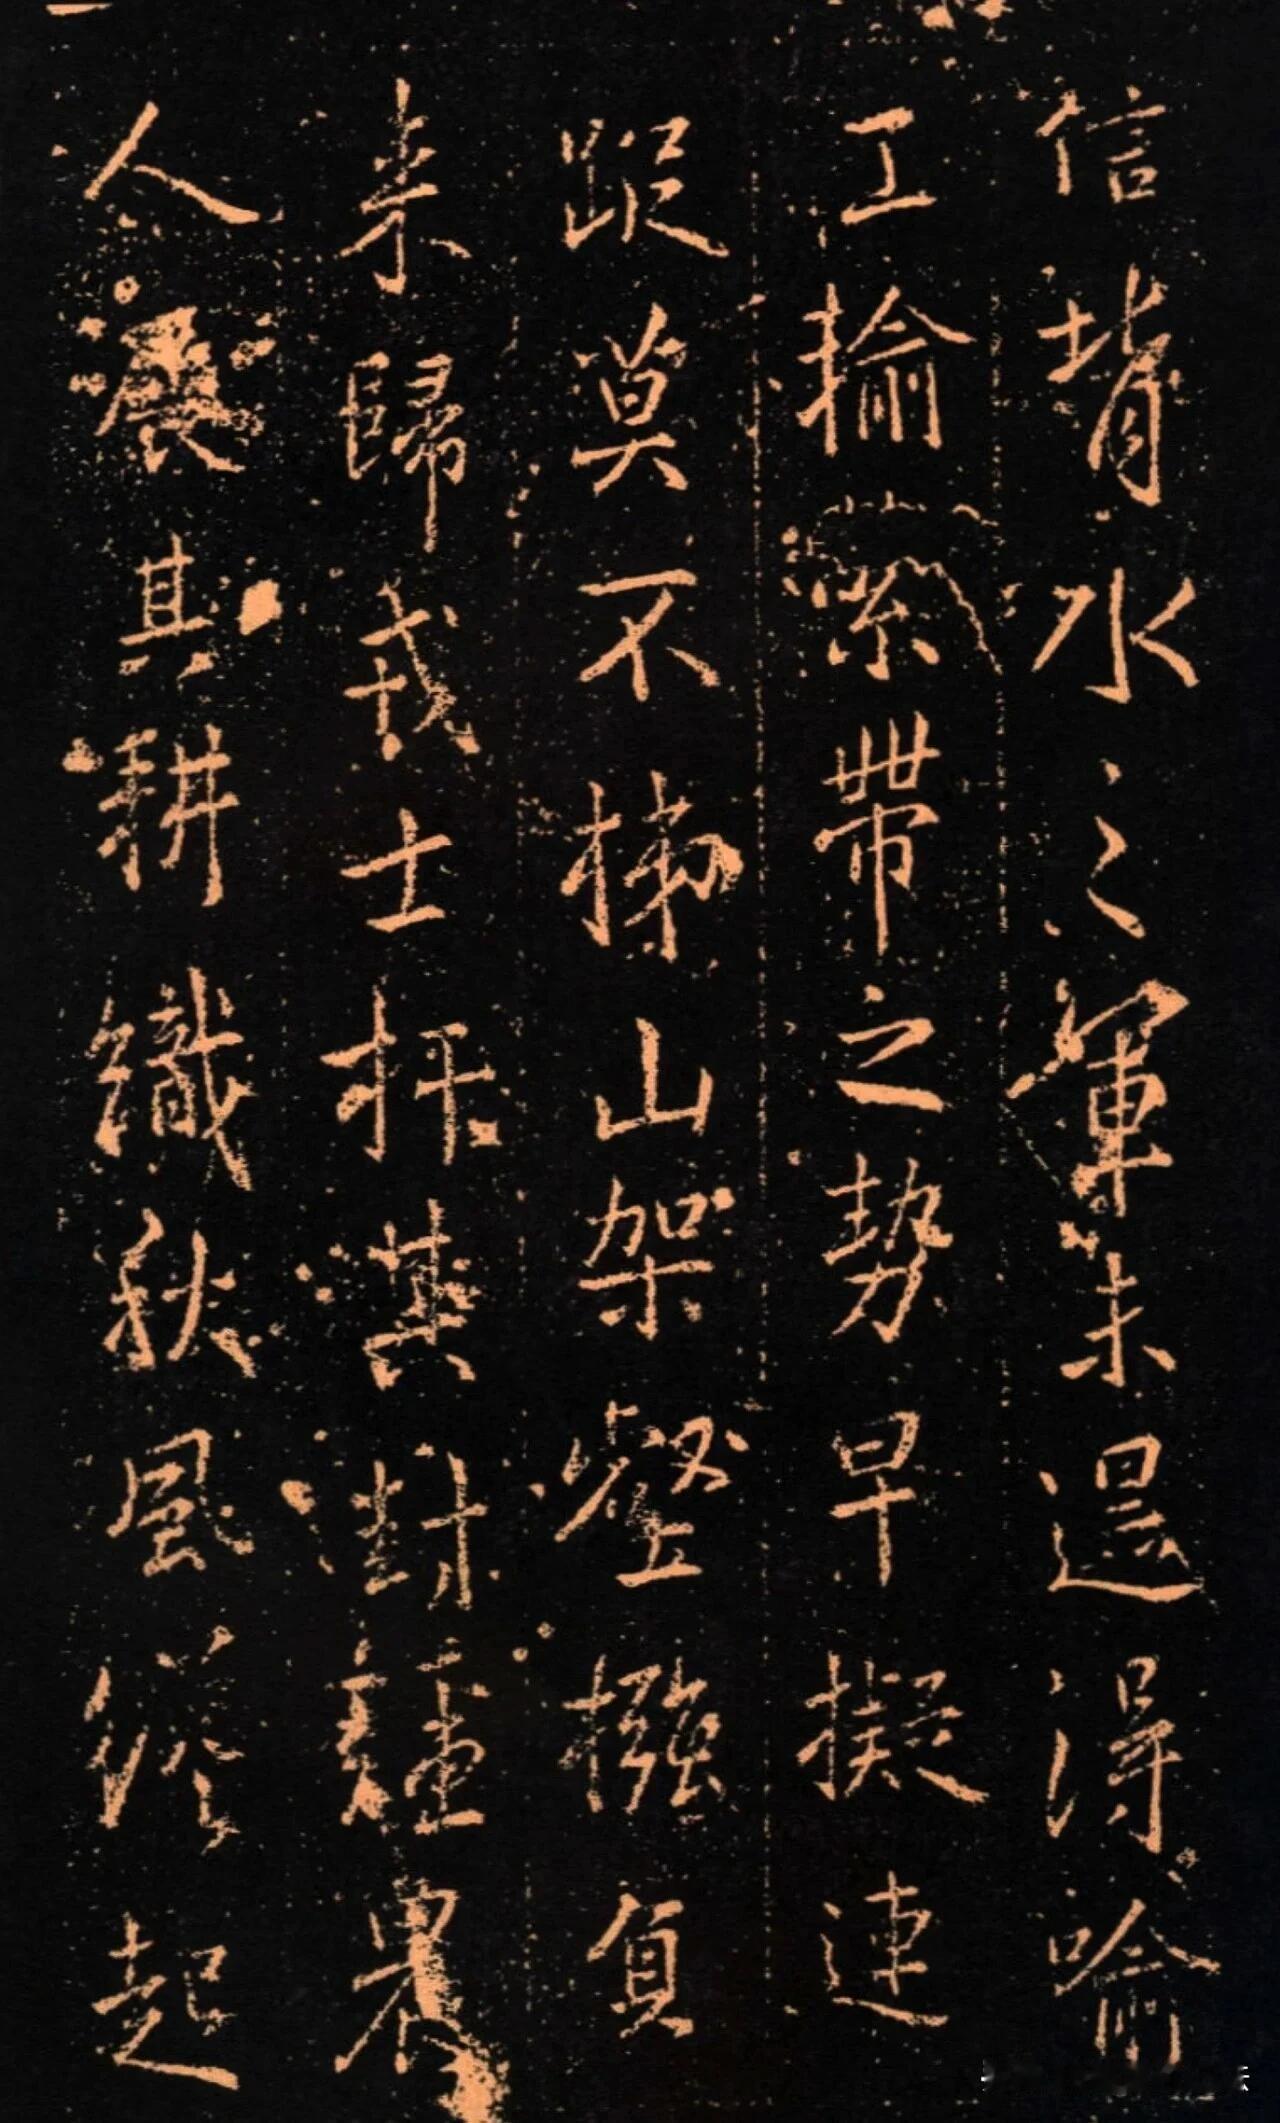 信背水之軍未遑得喻
工揄縈帶之勢早擬連
蹤莫不梯山架壑襁負
來歸戎士扞其封疆農
人展其耕織秋風縱起